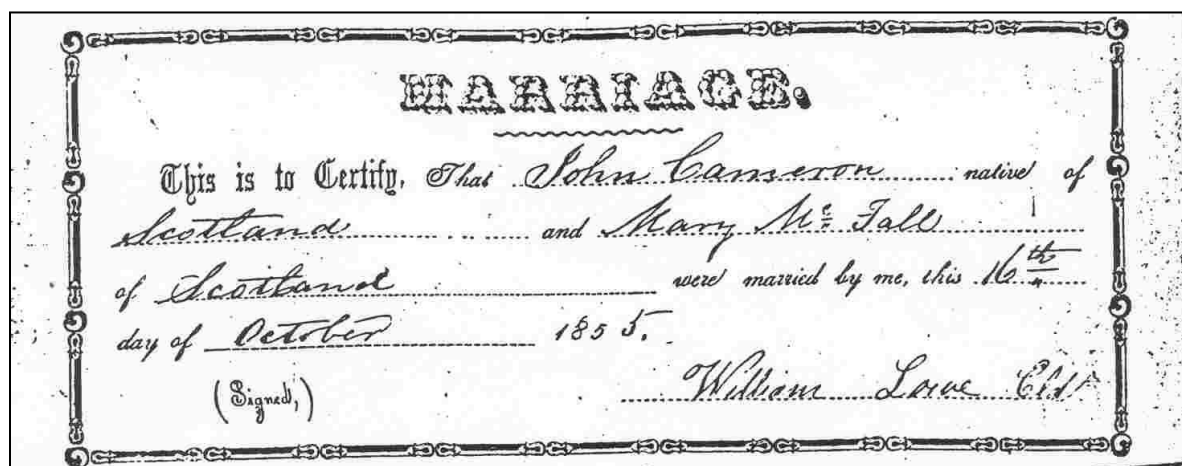 MARRIAGE.
This is to Certify, That John Cameron native of
Scotland and Mary Mc Fall
of Scotland were married by me, this 16th
day of October 1855.
(Signed,) William Lowe Eldr